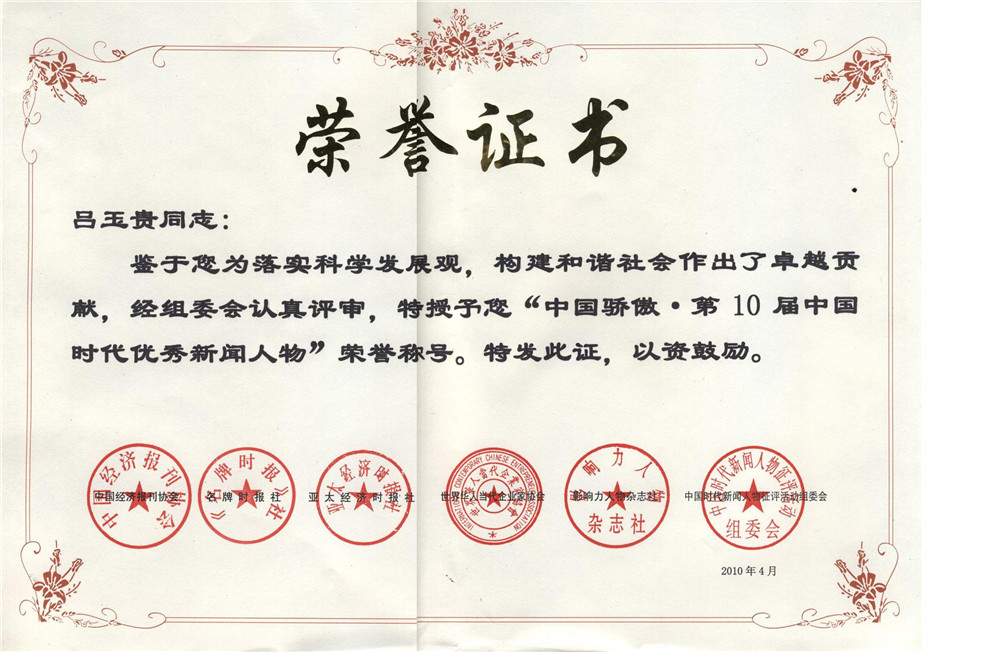 荣誉证书
吕玉贵同志：
鉴于您为落实科学发展观，构建和谐社会作出了卓越贡
献，经组委会认真评审，特授予您“中国骄傲·第10届中国
时代优秀新闻人物”荣誉称号。特发此证，以资鼓励。
中国经济报刊协会
《名牌时报》社
亚太经济时报社
INTERNATIONAL CONTEMPORARY CHINESE ENTREPRENEURS ASSOCIATION
世界华人当代企业家协会
影响力人物
杂志社
中国时代新闻人物征评活动
组委会
中国经济报刊协会 名牌时报社 亚太经济时报社 世界华人当代企业家协会 影响力人物杂志社 中国时代新闻人物征评活动组委会
2010年4月